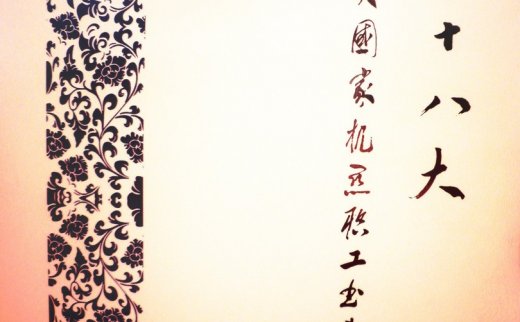 十八大
國家机关职工书